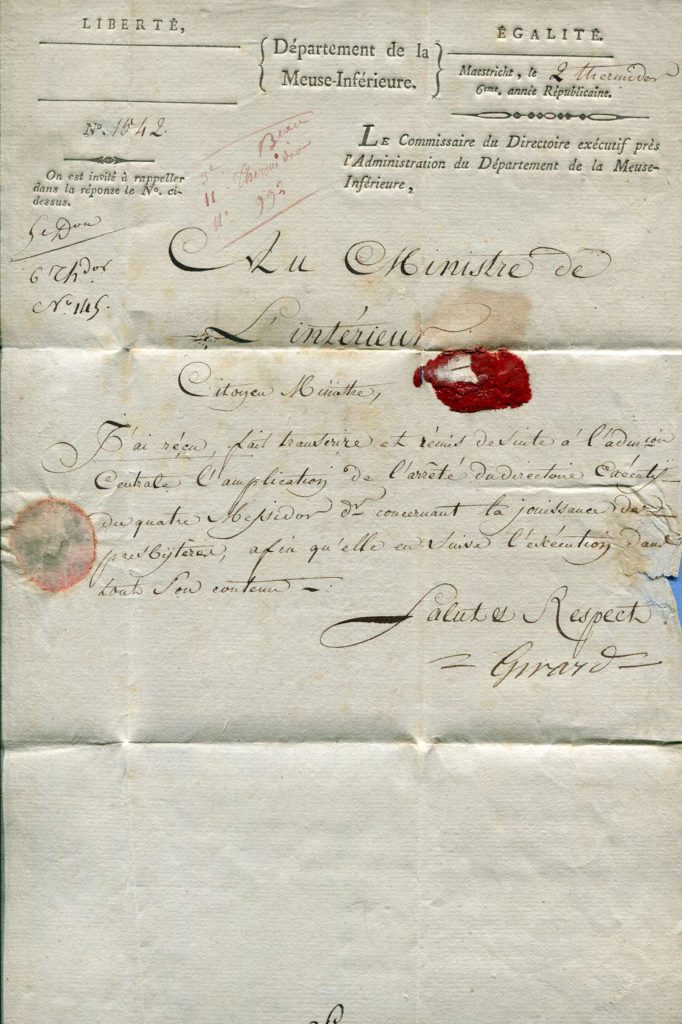 LIBERTÉ,
ÉGALITÉ.
Département de la
Meuse-Inférieure.
Maestricht, le 2 thermidor
6eme. année Républicaine.
N°. 1542.
On est invité à rappeller
dans la réponse le N°. ci-
dessus.
3e Bureau
11 Thermidor
N°. 992
LE Commissaire du Directoire exécutif près
l'Administration du Département de la Meuse-
Inférieure,
5e Don
6 Thdor
N° 145.
Au Ministre de
L'intérieur
Citoyen Ministre,
J'ai réçu, fait transcrire et rémis de suite á l'admon
Centrale l'amplication de l'arrêté du directoire Exécutif
du quatre Messidor dr concernant la jouissance des
presbijteres, afin qu'elle en suive l'exécution dans
tout son contenu -.
Salut & Respect
= Girard =